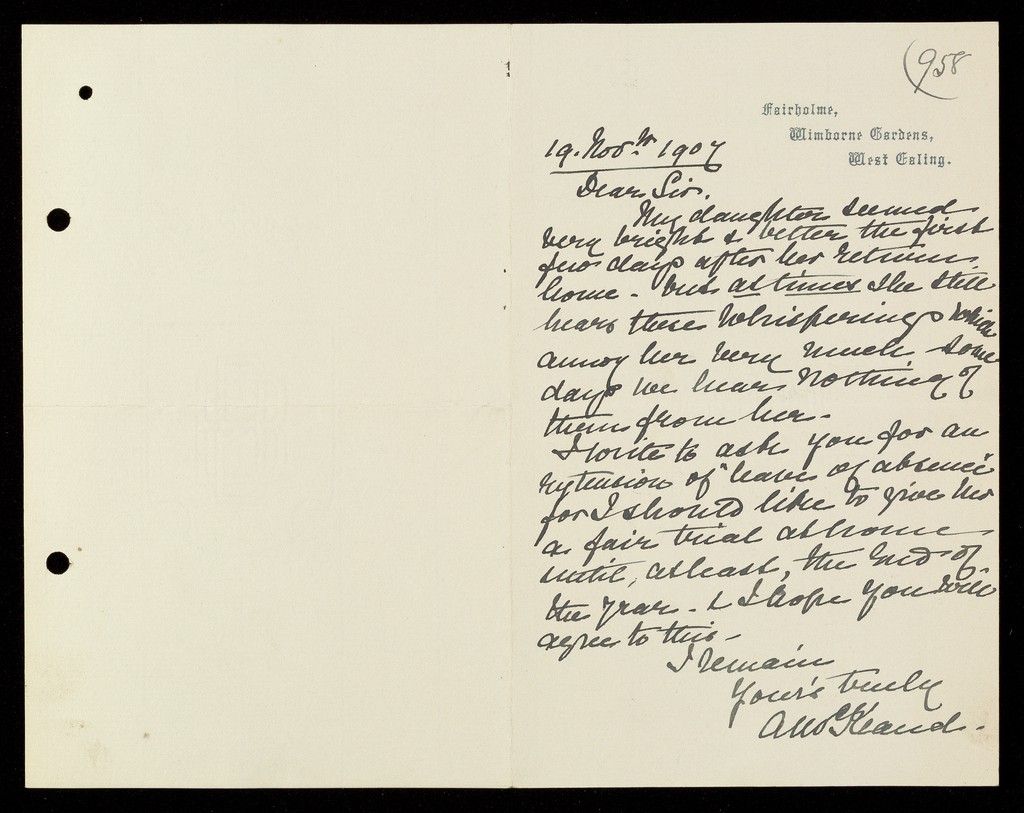 (958
Fairholme,
Wimborne Gardens,
West Ealing.
19. Novr. 1907
Dear Sir,
My daughter seemed
very bright & better the first
few days after her return
home - but at times she still
hears these whisperings which
annoy her very much, some
days we hear nothing of
them from her -
I write to ask you for an
extension of "leave of absence
for I should like to give her
a fair trial at home
until, at least, the end of
the year - & I hope you will
agree to this -
I remain
Your's truly